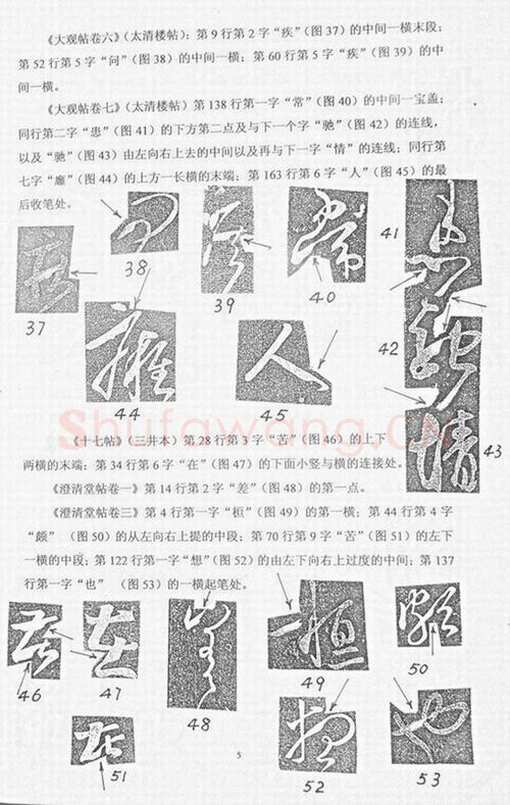 《大观帖卷六》（太清楼帖）：第9行第2字“疾”（图37）的中间一横末段；
第52行第5字“问”（图38）的中间一横；第60行第5字“疾”（图39）的中
间一横。
《大观帖卷七》（太清楼帖）第138行第一字“常”（图40）的中间一宝盖；
同行第二字“患”（图41）的下方第二点及与下一个字“驰”（图42）的连线，
以及“驰”（图43）由左向右上去的中间以及再与下一字“情”的连线；同行第
七字“廱”（图44）的上方一长横的末端；第163行第6字“人”（图45）的最
后收笔处。
37
38
39
40
41
42
43
44
45
Shufawang.CN
《十七帖》（三井本）第28行第3字“苦”（图46）的上下
两横的末端；第34行第6字“在”（图47）的下面小竖与横的连接处。
《澄清堂帖卷一》第14行第2字“差”（图48）的第一点。
《澄清堂帖卷三》第4行第一字“桓”（图49）的第一横；第44行第4字
“颇”（图50）的从左向右上提的中段；第70行第9字“苦”（图51）的左下
一横的中段；第122行第一字“想”（图52）的由左下向右上过度的中间；第137
行第一字“也”（图53）的一横起笔处。
46
47
48
49
50
51
52
53
5